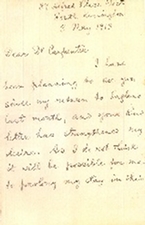 Place West
South Kensington
5 May 1913
Dear Dr Carpenter
I have
been planning to see you
since my return to England
last month, and your kind
letter has strengthened my
desire. As I do not think
it will be possible for me
to prolong my stay in this